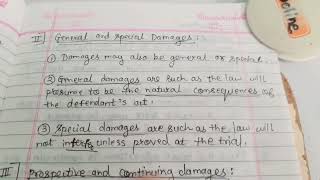 II] General and special Damages:
① Damages may also be general or special.
② General damages are such as the law will
presume to be the natural consequences of
the defendant's act.
③ Special damages are such as the law will
not unless proved at the trial.
III] Prospective and continuing damages: